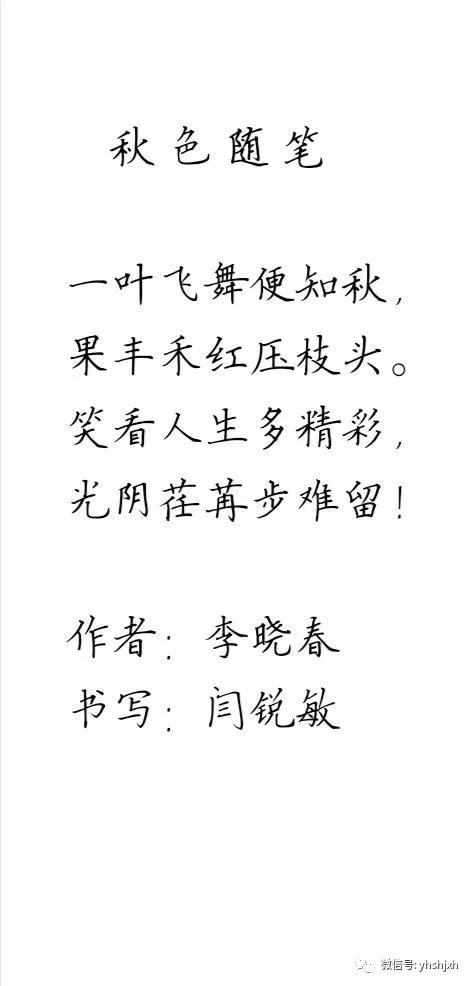 秋色随笔
一叶飞舞便知秋，
果丰禾红压枝头。
笑看人生多精彩，
光阴荏苒步难留！
作者：李晓春
书写：闫锐敏
微信号:yhshjxh